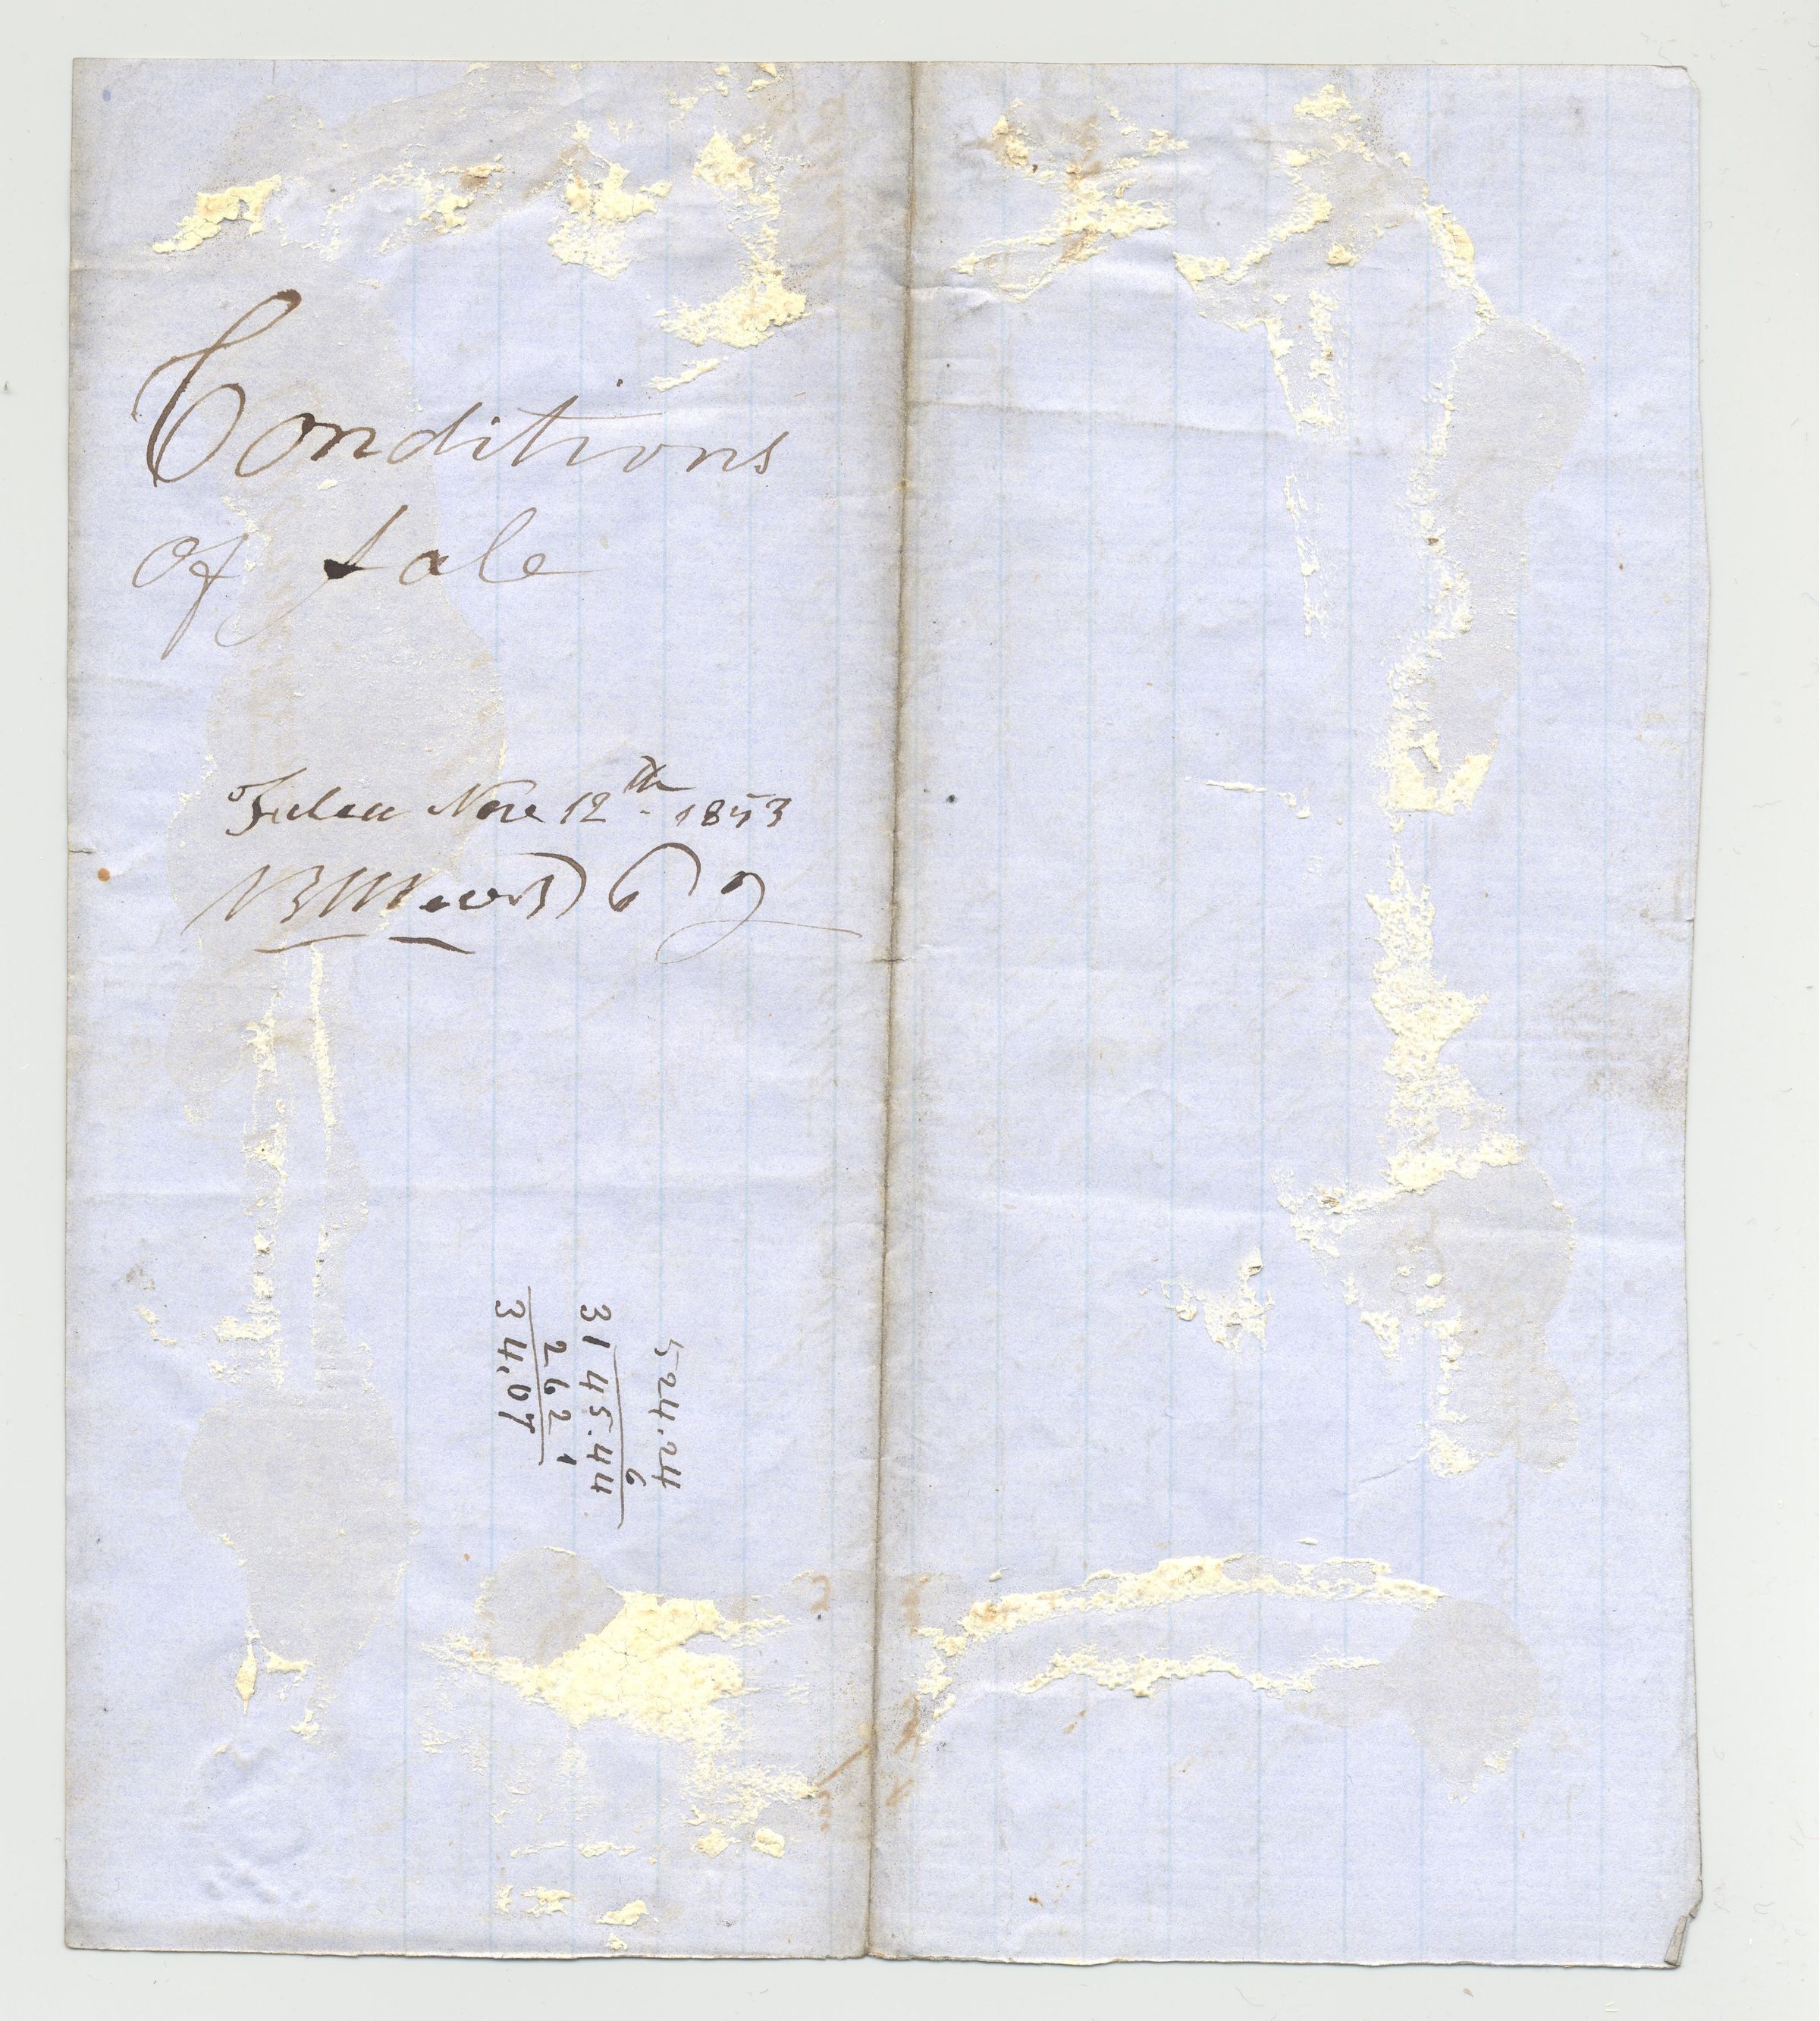 Conditions
of sale
Filed Nov 12th 1853
524.24
6
3145.44
2621
34,07